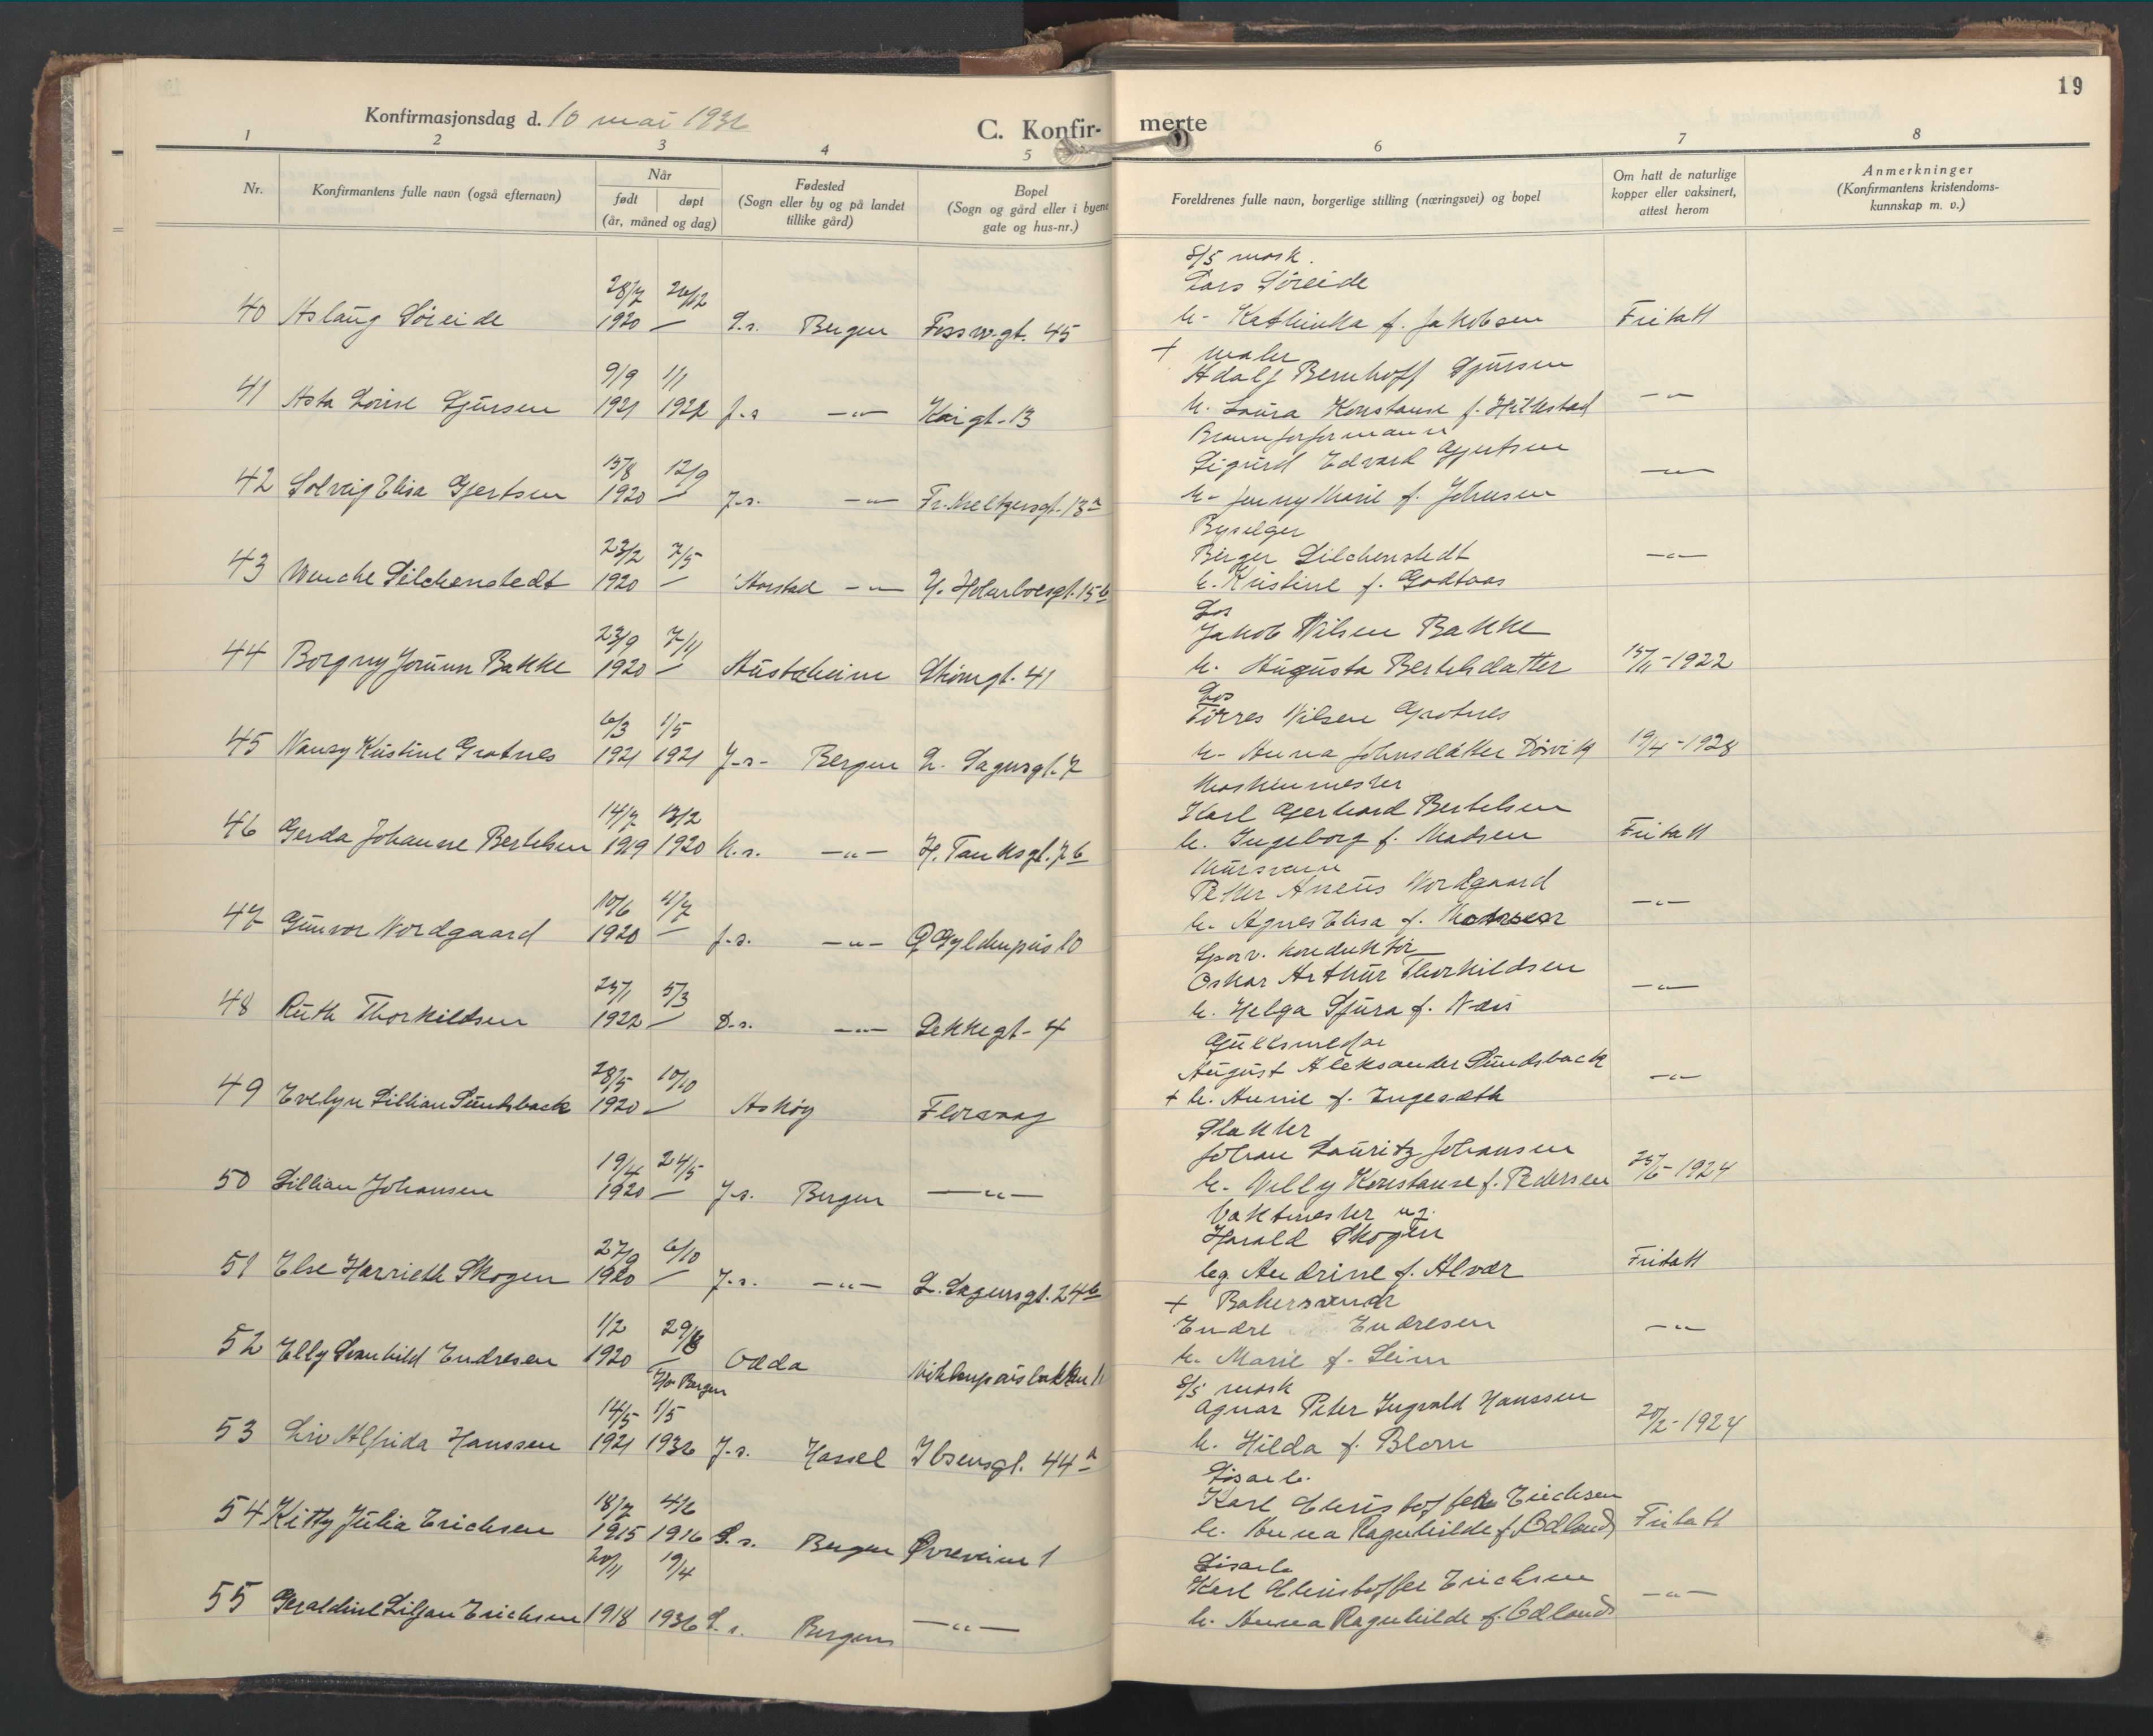 19
Konfirmasjonsdag d. 10 mai 1936
C. Konfir- merte
1 2 3 4 5 6 7 8
Nr.
Konfirmantens fulle navn (også efternavn)
Når
født døpt
(år, måned og dag)
Fødested
(Sogn eller by og på landet
tillike gård)
Bopel
(Sogn og gård eller i byene
gate og hus-nr.)
Foreldrenes fulle navn, borgerlige stilling (næringsvei) og bopel
Om hatt de naturlige
kopper eller vaksinert,
attest herom
Anmerkninger
(Konfirmantens kristendoms-
kunnskap m. v.)
S/S mask.
28/7 26/12 Lars Søreide
40 Aslaug Søreide 1920 — D.s. Bergen Fossw.gt. 45 h. Kathinka f. Jakobsen Fritatt
+ maler
9/9 1/1 Adolf Bernhoff Gjursen
41 Asta Lovise Gjursen 1921 1922 J.s. —"— Kaigt. 13 h. Laura Konstanse f. Hilkstad —"—
Brannforformann
15/8 12/9 Sigurd Edvard Gjertsen
42 Solveig Elisa Gjertsen 1920 — J.s. —"— Fr. Meltzersgt. 13a h. Jenny Marie f. Johnsen —"—
Byselger
23/2 7/5 Birger Silchenstedt
43 Wenche Silchenstedt 1920 — Harstad —"— 15b h. Kristine f. Godtaas —"—
Los
23/9 7/11 Jakob Nilsen Bakke
44 Borgny Jorunn Bakke 1920 — Austrheim 41 h. Augusta Bertelsdatter 15/11-1922
Los
6/3 1/5 Torres Nilsen Grotnes
45 Nancy Kristine Grotnes 1921 1921 J.s. Bergen L. Sagensgt. 7 h. Anna Johnsdatter Dørvik 19/4-1928
Maskinmester
14/7 13/2 Karl Gerhard Bertelsen
46 Gerda Johanne Bertelsen 1919 1920 N.s. —"— H. Tanksgt. 7b h. Ingeborg f. Madsen Fritatt
Mursvenn
10/6 4/7 Petter Areus Nordgaard
47 Gunvor Nordgaard 1920 — J.s. —"— 10 h. Agnes Elisa f.  —"—
Sporv. konduktør
25/1 5/3 Oskar Arthur Thorkildsen
48 Ruth Thorkildsen 1922 — D.s. —"— Lekkegt. 4 h. Helga Sjura f. Næs —"—
Gullsmed
28/5 10/10 August Aleksander Sundsback
49 Evelyn Lillian Sundsback 1920 — Askøy Florvaag + h. Annie f. Ingesæth —"—
Slakter
19/4 24/5 Johan Lauritz Johansen
50 Lillian Johansen 1920 — J.s. Bergen —"— h. Willy Konstanse f. Pedersen 25/6-1924
Vaktmester
27/9 6/10 Harald Skogen
51 Else Harrieth Skogen 1920 — J.s. —"— L. Sagensgt. 24b og Andrine f. Alvær Fritatt
+ Bakersvenn
1/2 29/8 Endre Endresen —"—
52 Elly Svanhild Endresen 1920 — Odda h. Marie f. Seim
Bergen
S/S mask
14/5 1/5 Agnar Peter Ingvald Hanssen
53 Liv Alfrida Hanssen 1921 1936 J.s. Hassel Ibsensgt. 44a h. Hilda f. Blom 20/2-1924
Løsarb.
18/7 4/6 Karl Christoffer Erichsen
54 Kitty Julia Erichsen 1915 1916 S.s. Bergen Øvreveien 1 h. Anna Ragnhilde f. Ødland Fritatt
Løsarb.
20/11 19/4 Karl Christoffer Erichsen
55 Geraldine Liljan Erichsen 1918 1936 S.s. Bergen —"— h. Anna Ragnhilde f. Ødland —"—